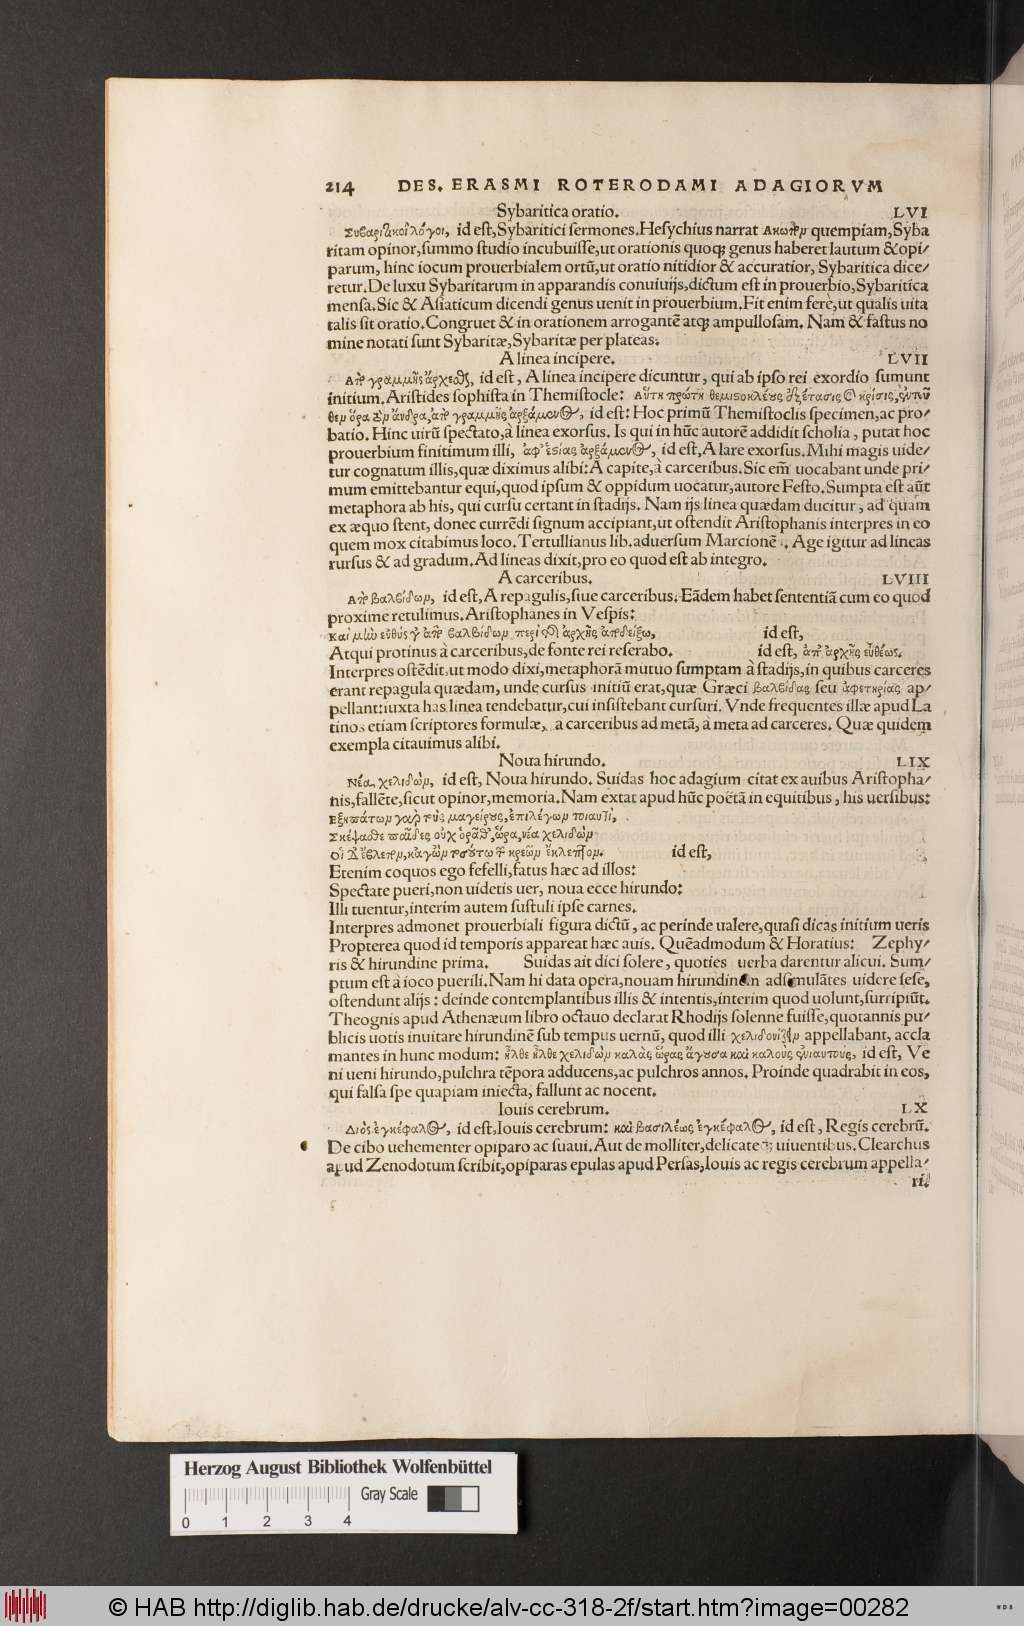 214 DES. ERASMI ROTERODAMI ADAGIORVM
Sybaritica oratio. LVI
Συβαριτικοὶ λόγοι, id eſt, Sybaritici ſermones. Heſychius narrat quempiam, Syba
ritam opinor, ſummo ſtudio incubuiſſe, ut orationis quoqꝫ genus haberet lautum & opi/
parum, hinc iocum prouerbialem ortũ, ut oratio nitidior & accuratior, Sybaritica dice/
retur. De luxu Sybaritarum in apparandis conuiuijs, dictum eſt in prouerbio, Sybaritica
menſa. Sic & Aſiaticum dicendi genus uenit in prouerbium. Fit enim ferè, ut qualis uita
talis ſit oratio. Congruet & in orationem arrogantẽ atqꝫ ampulloſam. Nam & faſtus no
mine notati ſunt Sybaritæ, Sybaritæ per plateas.
A linea incipere. LVII
Ἀπὸ γραμμῆς ἄρχεσθαι, id eſt, A linea incipere dicuntur, qui ab ipſo rei exordio ſumunt
initium. Ariſtides ſophiſta in Themiſtocle: αὕτη πρώτη θεμιστοκλέους ἐξέτασις καὶ κρίσις,
ὅρα τὸν ἄνδρα, ἀπὸ γραμμῆς ἀρξάμενος, id eſt: Hoc primũ Themiſtoclis ſpecimen, ac pro/
batio. Hinc uirũ ſpectato, à linea exorſus. Is qui in hũc autorẽ addidit ſcholia, putat hoc
prouerbium finitimum illi, ἀφ' ἑστίας ἀρξάμενος, id eſt, A lare exorſus. Mihi magis uide/
tur cognatum illis, quæ diximus alibi: A capite, à carceribus. Sic em̃ uocabant unde pri/
mum emittebantur equi, quod ipſum & oppidum uocatur, autore Feſto. Sumpta eſt aũt
metaphora ab his, qui curſu certant in ſtadijs. Nam ijs linea quædam ducitur, ad quam
ex æquo ſtent, donec currẽdi ſignum accipiant, ut oſtendit Ariſtophanis interpres in eo
quem mox citabimus loco. Tertullianus lib. aduerſum Marcionẽ. Age igitur ad lineas
rurſus & ad gradum. Ad lineas dixit, pro eo quod eſt ab integro.
A carceribus. LVIII
Ἀπὸ βαλβίδων, id eſt, A repagulis, ſiue carceribus. Eãdem habet ſententiã cum eo quod
proxime retulimus. Ariſtophanes in Veſpis:
Καὶ μὴν εὐθύς γ' ἀπὸ βαλβίδων περὶ τῆς ἀρχῆς ἀποδείξω, id eſt,
Atqui protinus à carceribus, de fonte rei reſerabo. id eſt, ἀπ' ἀρχῆς εὐθέως.
Interpres oſtẽdit, ut modo dixi, metaphorã mutuo ſumptam à ſtadijs, in quibus carceres
erant repagula quædam, unde curſus initiũ erat, quæ Græci βαλβίδας ſeu ἀφετηρίας ap/
pellant: iuxta has linea tendebatur, cui inſiſtebant curſuri. Vnde frequentes illæ apud La
tinos etiam ſcriptores formulæ, a carceribus ad metã, à meta ad carceres. Quæ quidem
exempla citauimus alibi.
Noua hirundo. LIX
Νέα χελιδὼν, id eſt, Noua hirundo. Suidas hoc adagium citat ex auibus Ariſtopha/
nis, fallẽte, ſicut opinor, memoria. Nam extat apud hũc poëtã in equitibus, his uerſibus:
Ἐξηπάτων γὰρ τοὺς μαγείρους, ἐπιλέγων τοιαυτί,
Σκέψασθε παῖδες οὐχ ὁρᾶθ', ὥρα, νέα χελιδὼν
Οἱ δ' ἔβλεπον, κἀγὼν τοσούτῳ τῶν κρεῶν ἔκλεπτον. id eſt,
Etenim coquos ego fefelli, fatus hæc ad illos:
Spectate pueri, non uidetis uer, noua ecce hirundo:
Illi tuentur, interim autem ſuſtuli ipſe carnes.
Interpres admonet prouerbiali figura dictũ, ac perinde ualere, quaſi dicas initium ueris
Propterea quod id temporis appareat hæc auis. Quẽadmodum & Horatius: Zephy/
ris & hirundine prima. Suidas ait dici ſolere, quoties uerba darentur alicui. Sum/
ptum eſt à ioco puerili. Nam hi data opera, nouam hirundinem adſimulãtes uidere ſeſe,
oſtendunt alijs: deinde contemplantibus illis & intentis, interim quod uolunt, ſurripiũt.
Theognis apud Athenæum libro octauo declarat Rhodijs ſolenne fuiſſe, quotannis pu/
blicis uotis inuitare hirundinẽ ſub tempus uernũ, quod illi χελιδονίζειν appellabant, accla
mantes in hunc modum: ἦλθε ἦλθε χελιδὼν καλὰς ὥρας ἄγουσα καὶ καλοὺς ἐνιαυτοὺς, id eſt, Ve
ni ueni hirundo, pulchra tẽpora adducens, ac pulchros annos. Proinde quadrabit in eos,
qui falſa ſpe quapiam iniecta, fallunt ac nocent.
Iouis cerebrum. LX
Διὸς ἐγκέφαλος, id eſt, Iouis cerebrum: καὶ βασιλέως ἐγκέφαλος, id eſt, Regis cerebrũ.
De cibo uehementer opiparo ac ſuaui. Aut de molliter, delicateqꝫ uiuentibus. Clearchus
apud Zenodotum ſcribit, opiparas epulas apud Perſas, Iouis ac regis cerebrum appella/
ri.
Herzog August Bibliothek Wolfenbüttel
Gray Scale
0 1 2 3 4
© HAB http://diglib.hab.de/drucke/alv-cc-318-2f/start.htm?image=00282